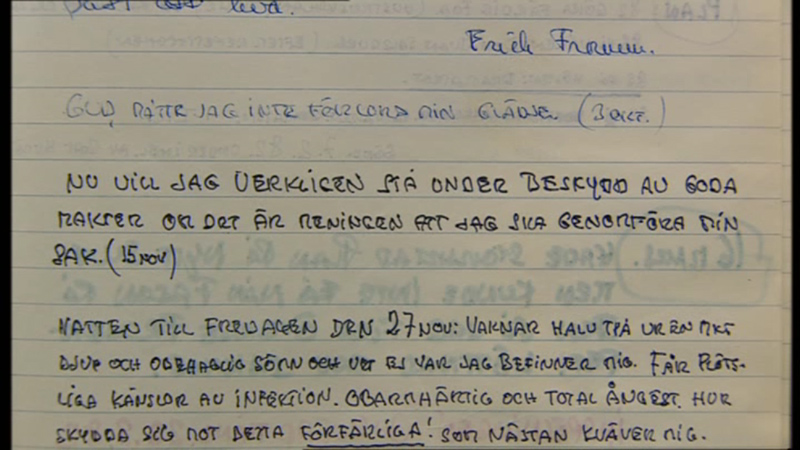 Erich Fromm.
GUD, MÅTTE JAG INTE FÖRLORA MIN GLÄDJE. (3 OKT.)
NU VILL JAG VERKLIGEN STÅ UNDER BESKYDD AV GODA
MAKTER OM DET ÄR MENINGEN ATT JAG SKA GENOMFÖRA MIN
SAK. (15 NOV)
NATTEN TILL FREDAGEN DEN 27 NOV: VAKNAR HALVT PÅ UR EN MKT
DJUP OCH OBEHAGLIG SÖMN OCH VET EJ VAR JAG BEFINNER MIG. FÅR PLÖTS-
LIGA KÄNSLOR AV INFEKTION. OBARMHÄRTIG OCH TOTAL ÅNGEST. HUR
SKYDDA SIG MOT DETTA FÖRFÄRLIGA! SOM NÄSTAN KVÄVER MIG.